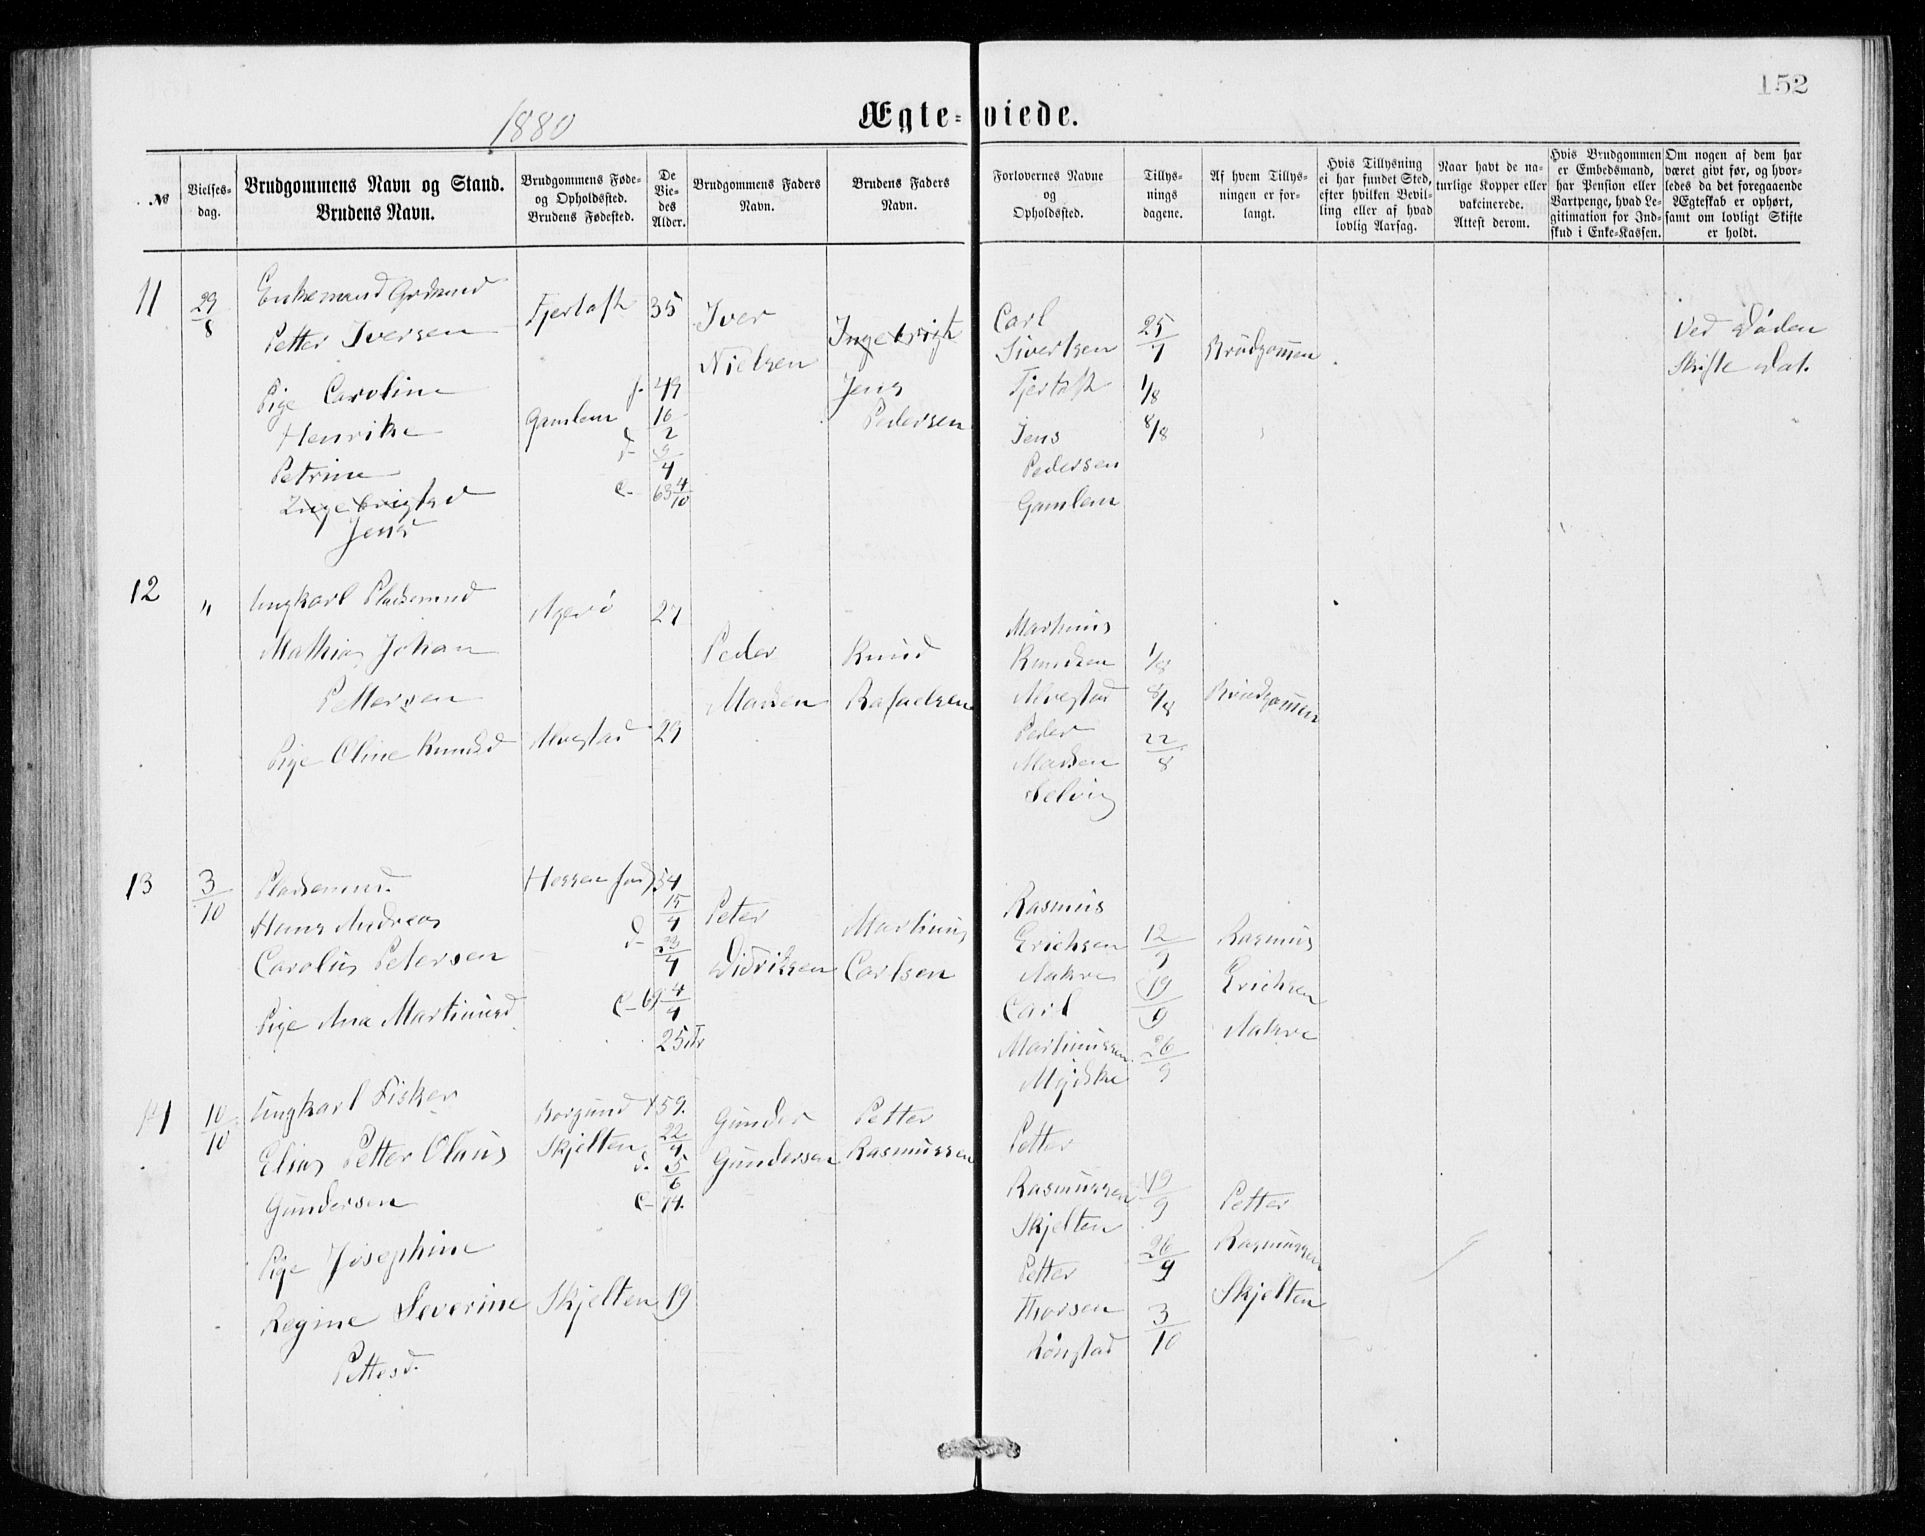 152
1880
Ægte-viede.
№
Vielses-
dag.
Brudgommens Navn og Stand.
Brudens Navn.
Brudgommens Føde-
og Opholdssted.
Brudens Fødested.
De
Vie-
des
Alder.
Brudgommens Faders
Navn.
Brudens Faders
Navn.
Forlovernes Navne
og
Opholdssted.
Tillys-
nings
dagene.
Af hvem Tillys-
ningen er for-
langt.
Hvis Tillysning
ei har fundet Sted,
efter hvilken Bevil-
ling eller af hvad
lovlig Aarsag.
Naar havt de na-
turlige Kopper eller
vakcinerede.
Attest derom.
Hvis Brudgommen
er Embedsmand,
har Pension eller
Vartpenge, hvad Le-
gitimation for Ind-
skud i Enke-Kassen.
Om nogen af dem har
været givt før, og hvor-
ledes da det foregaaende
Ægteskab er ophørt,
samt om lovligt Skifte
er holdt.
11
29/8
Enkemand Grdmnd
Petter Iversen
Pige Caroline
Henrike
Petrine
Ingebrigtsd
Jensd
Fjertoft
f. 49
Gamlem
35
16/2
9/4
c. 63 4/10
Iver
Nielsen
Ingebrigt
Jens
Pedersen
Carl
Sivertsen
Fjertoft
Jens
Pedersen
Gamlem
25/7
1/8
8/8
Brudgommen
Ved Døden
Skifte dat.
12
"
Ungkarl Pladsmand
Mathias Johan
Pettersen
Pige Oline Knudsd
Agerø
Alvestad
27
29
Peder
Madsen
Knud
Rafaelsen
Martinus
Knudsen
Alvestad
Peder
Madsen
Selvig
1/8
8/8
22/8
Brudgommen
13
3/10
Pladsmand
Hans Andreas
Carolus Petersen
Pige Ana Martinusd
54
15/4
d. 23/4
C. 69 4/4
25
Peter
Didriksen
Martinus
Carlsen
Rasmus
Erichsen
Aakre
Carl
Martinussen
Mydske
12/9
19/9
26/9
Rasmus
Erichsen
Aakre
14
10/10
Ungkarl Fisker
Elias Petter Olaus
Gundersen
Pige Josephine
Regine Severine
Pettersd.
Borgund
Skjelten
Skjelten
f 59.
22/4
d. 5/6
C. 74.
19
Gunder
Gundersen
Petter
Rasmussen
Petter
Rasmussen
Skjelten
Petter
Thorsen
Rønstad
19/9
26/9
3/10
Petter
Rasmussen
Skjelten